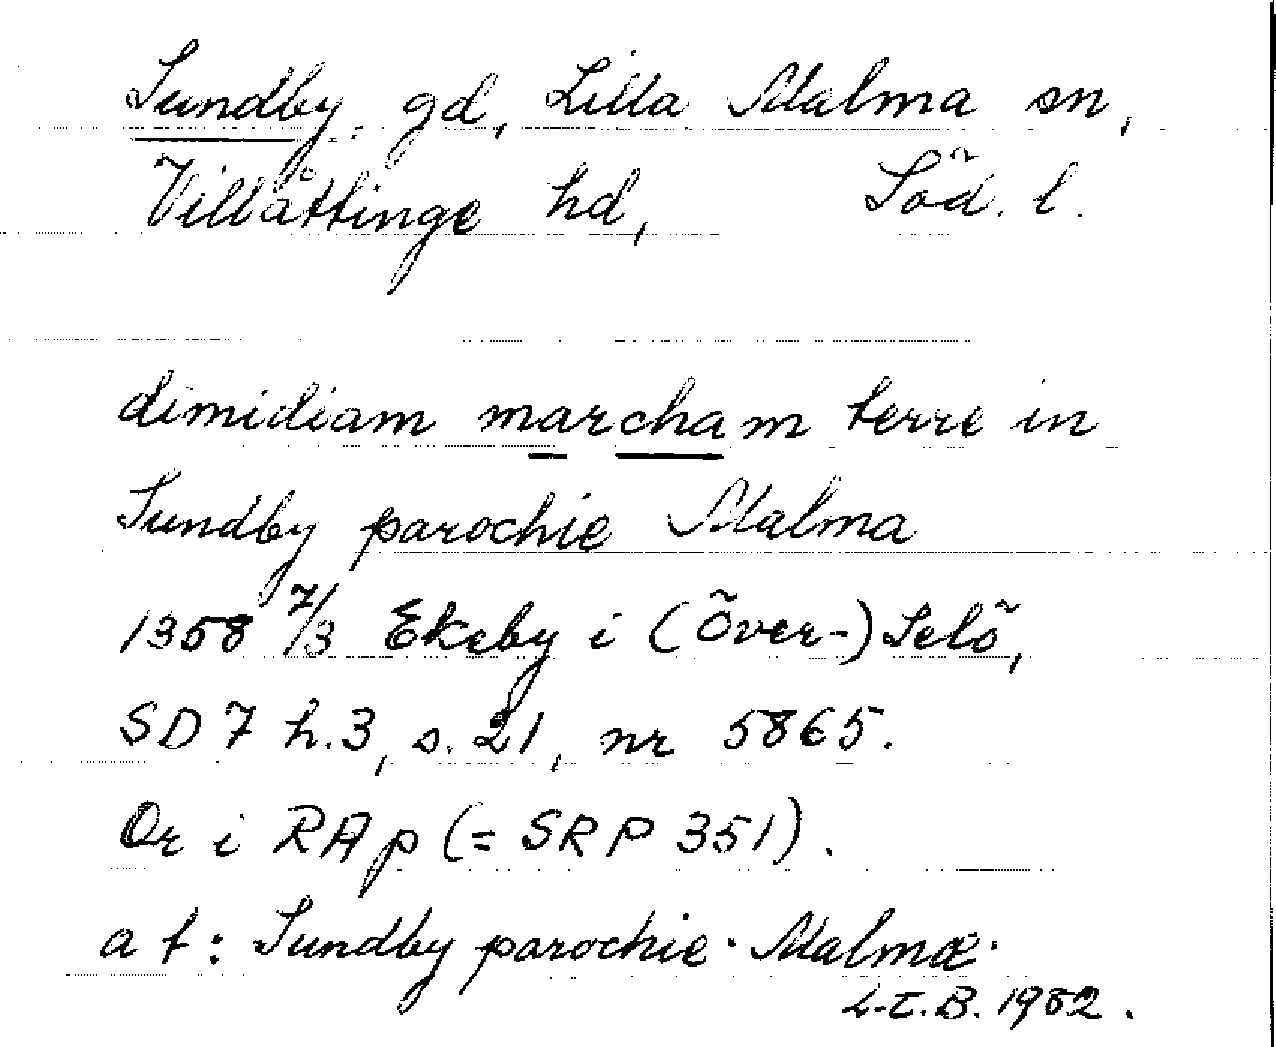 Sundby, gd, Lilla Malma sn,
Villåttinge hd, Söd. l.
dimidiam marcham terre in
Sundby parochie Malma
1358 7/3 Ekeby i (Över-) Selö,
SD 7 h.3, s. 21, nr 5865.
Or i RAp (= SRP 351).
a t: Sundby parochie · Malmæ ·
L-E.B. 1982.